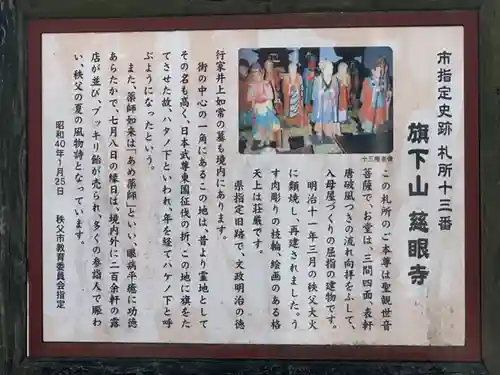 市指定史跡 札所十三番
旗下山 慈眼寺
この札所のご本尊は聖観世音
菩薩で、お堂は、三間四面、表軒
唐破風つきの流れ向拝をふして、
入母屋づくりの屈指の建物です。
明治十一年三月の秩父大火
に類焼し、再建されました。う
す肉彫りの枝輪絵画のある格
天上は荘厳です。
県指定旧跡で、文政明治の徳
行家井上如常の墓も境内にあります。
街の中心の一角にあるこの地は、昔より霊地として
その名も高く、日本武尊東国征伐の折、この地に旗をた
てさせた故、ハタノ下といわれ、年を経てハケノ下と呼
ぶようになったという。
また、薬師如来は「あめ薬師」といい、眼病平癒に功徳
あらたかで、七月八日の縁日は、境内外に二百余軒の露
店が並び、ブッキリ飴が売られ、多くの参詣人で賑わ
い、秩父の夏の風物詩となっています。
昭和40年1月25日 秩父市教育委員会指定
十三権者像